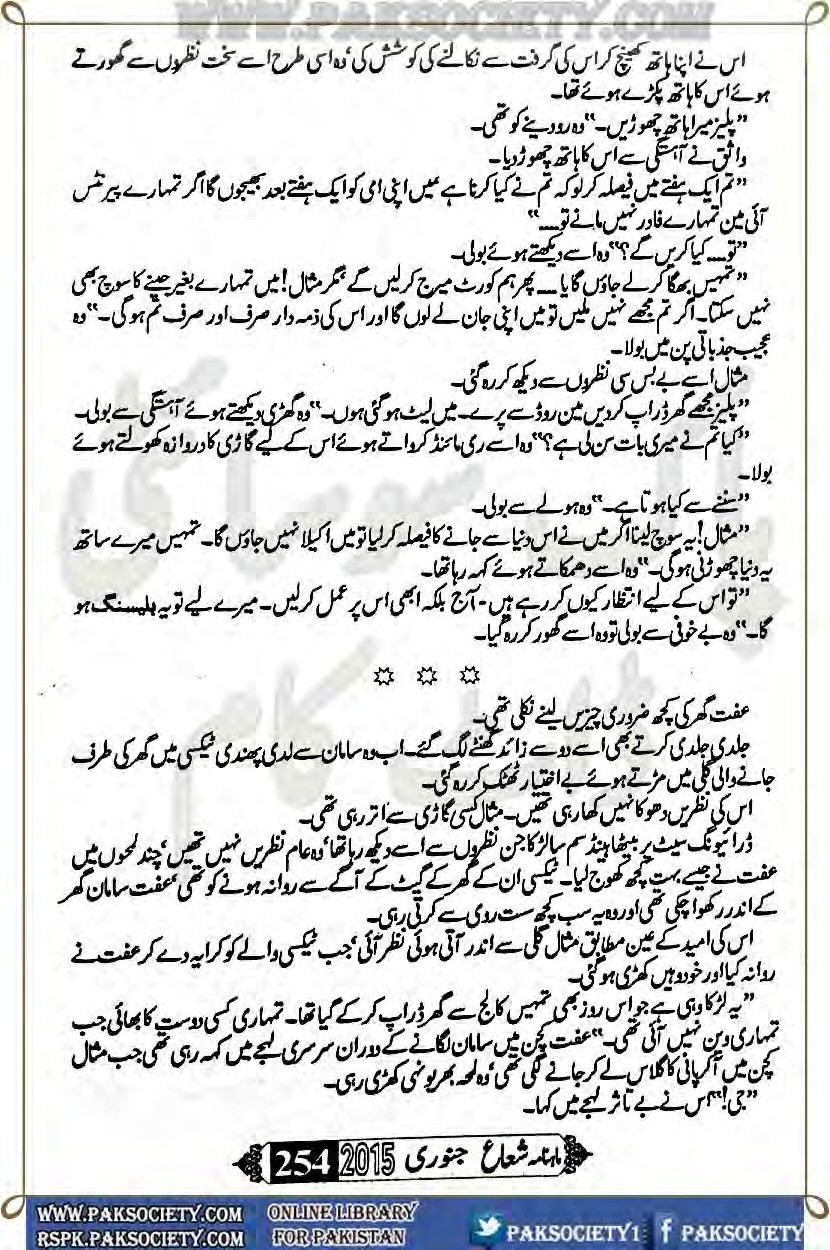 WWW.PAKSOCIETY.COM
اس نے اپنا ہاتھ کھینچ کر اس کی گرفت سے نکالنے کی کوشش کی‘ وہ اسی طرح اسے سخت نظروں سے گھورتے
ہوئے اس کا ہاتھ پکڑے ہوئے تھا۔
”پلیز میرا ہاتھ چھوڑیں۔“ وہ رو دینے کو تھی۔
واثق نے آہستگی سے اس کا ہاتھ چھوڑ دیا۔
”تم ایک ہفتے میں فیصلہ کر لو کہ تم نے کیا کرنا ہے میں اپنی امی کو ایک ہفتے بعد بھیجوں گا اگر تمہارے پیرنٹس
آئی مین تمہارے فادر نہیں مانے تو....“
”تو.... کیا کریں گے؟“ وہ اسے دیکھتے ہوئے بولی۔
”تمہیں بھگا کر لے جاؤں گا یا.... پھر ہم کورٹ میرج کر لیں گے مگر مثال! میں تمہارے بغیر جینے کا سوچ بھی
نہیں سکتا۔ اگر تم مجھے نہیں ملیں تو میں اپنی جان لے لوں گا اور اس کی ذمہ دار صرف اور صرف تم ہو گی۔“ وہ
عجیب جذباتی پن میں بولا۔
مثال اسے بے بس سی نظروں سے دیکھ کر رہ گئی۔
”پلیز مجھے گھر ڈراپ کر دیں مین روڈ سے پرے۔ میں لیٹ ہو گئی ہوں۔“ وہ گھڑی دیکھتے ہوئے آہستگی سے بولی۔
”کیا تم نے میری بات سن لی ہے؟“ وہ اسے ری مائنڈ کرواتے ہوئے اس کے لیے گاڑی کا دروازہ کھولتے ہوئے
بولا۔
”سننے سے کیا ہوتا ہے۔“ وہ ہولے سے بولی۔
”مثال! یہ سوچ لینا اگر میں نے اس دنیا سے جانے کا فیصلہ کر لیا تو میں اکیلا نہیں جاؤں گا۔ تمہیں میرے ساتھ
یہ دنیا چھوڑنی ہو گی۔“ وہ اسے دھمکاتے ہوئے کہہ رہا تھا۔
”تو اس کے لیے انتظار کیوں کر رہے ہیں۔ آج بلکہ ابھی اس پر عمل کر لیں۔ میرے لیے تو یہ بلیسنگ ہو
گا۔“ وہ بے خوفی سے بولی تو وہ اسے گھور کر رہ گیا۔
عفت گھر کی کچھ ضروری چیزیں لینے نکلی تھی۔
جلدی جلدی کرتے بھی اسے دو سے زائد گھنٹے لگ گئے۔ اب وہ سامان سے لدی پھندی ٹیکسی میں گھر کی طرف
جانے والی گلی میں مڑتے ہوئے بے اختیار ٹھٹک کر رہ گئی۔
اس کی نظریں دھوکا نہیں کھا رہی تھیں۔ مثال کسی گاڑی سے اتر رہی تھی۔
ڈرائیونگ سیٹ پر بیٹھا ہینڈسم سا لڑکا جن نظروں سے اسے دیکھ رہا تھا‘ وہ عام نظریں نہیں تھیں‘ چند لمحوں میں
عفت نے جیسے بہت کچھ کھوج لیا۔ ٹیکسی ان کے گھر کے گیٹ کے آگے سے روانہ ہونے کو تھی‘ عفت سامان گھر
کے اندر رکھوا چکی تھی اور وہ یہ سب کچھ ست روی سے کرتی رہی۔
اس کی امید کے عین مطابق مثال گلی سے اندر آتی ہوئی نظر آئی‘ جب ٹیکسی والے کو کرایہ دے کر عفت نے
روانہ کیا اور خود وہیں کھڑی ہو گئی۔
”یہ لڑکا وہی ہے جو اس روز بھی تمہیں کالج سے گھر ڈراپ کر کے گیا تھا۔ تمہاری کسی دوست کا بھائی جب
تمہاری وین نہیں آئی تھی۔“ عفت کچن میں سامان لگانے کے دوران سرسری لہجے میں کہہ رہی تھی جب مثال
کچن میں آ کر پانی کا گلاس لے کر جانے لگی تھی‘ وہ لمحہ بھر یونہی کھڑی رہی۔
”جی!“ اس نے بے تاثر لہجے میں کہا۔
ماہنامہ شعاع جنوری 2015 254
WWW.PAKSOCIETY.COM ONLINE LIBRARY PAKSOCIETY1 PAKSOCIETY
RSPK.PAKSOCIETY.COM FOR PAKISTAN